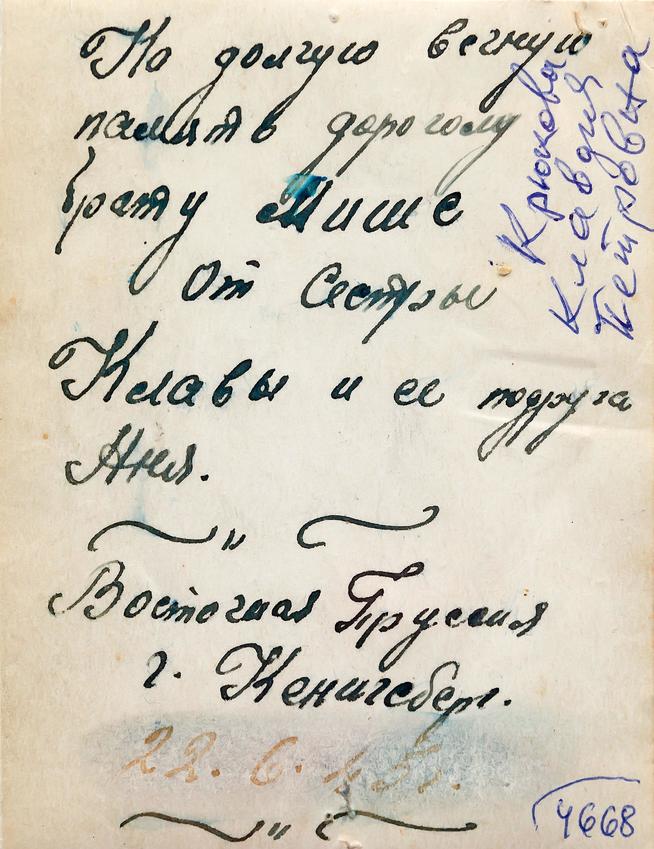 На долгую вечную
память дорогому
брату Мише
От Сестры
Клавы и ее подруга
Аня.
Восточная Пруссия
г. Кенигсберг.
22. 6. 45г.
Крюкова
Клавдия
Петровна
4668